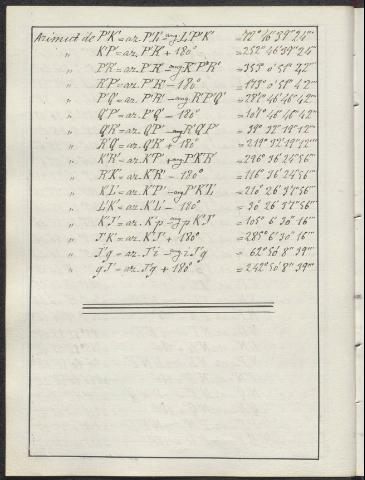 Azimut de P'K' = az. P'L' - ang L'P'K' = 72° 46' 39'' 24'''
" K'P' = az. P'K' + 180° = 252° 46' 39'' 24'''
" P'R' = az. P'K' - ang K'P'R' = 353° 0' 51'' 42'''
" R'P' = az. P'R' - 180° = 173° 0' 51'' 42'''
" P'Q' = az. P'R' - ang R'P'Q' = 287° 46' 46'' 42'''
" Q'P' = az. P'Q' - 180° = 107° 46' 46'' 42'''
" Q'R' = az. Q'P' - ang R'Q'P' = 39° 32' 19'' 12'''
" R'Q' = az. Q'R' + 180° = 219° 32' 19'' 12'''
" K'R' = az. K'P' + ang P'K'R' = 296° 36' 24'' 56'''
" R'K' = az. K'R' - 180° = 116° 36' 24'' 56'''
" K'L' = az. K'P' - ang P'K'L' = 210° 26' 37'' 56'''
" L'K' = az. K'L' - 180° = 30° 26' 37'' 56'''
" K'J' = az. K'p - ang p K'J' = 105° 6' 30'' 16'''
" J'K' = az. K'J' + 180° = 285° 6' 30'' 16'''
" J'g = az. J'i - ang i J'g = 62° 50' 8'' 39'''
" gJ' = az. J'g + 180° = 242° 50' 8'' 39'''